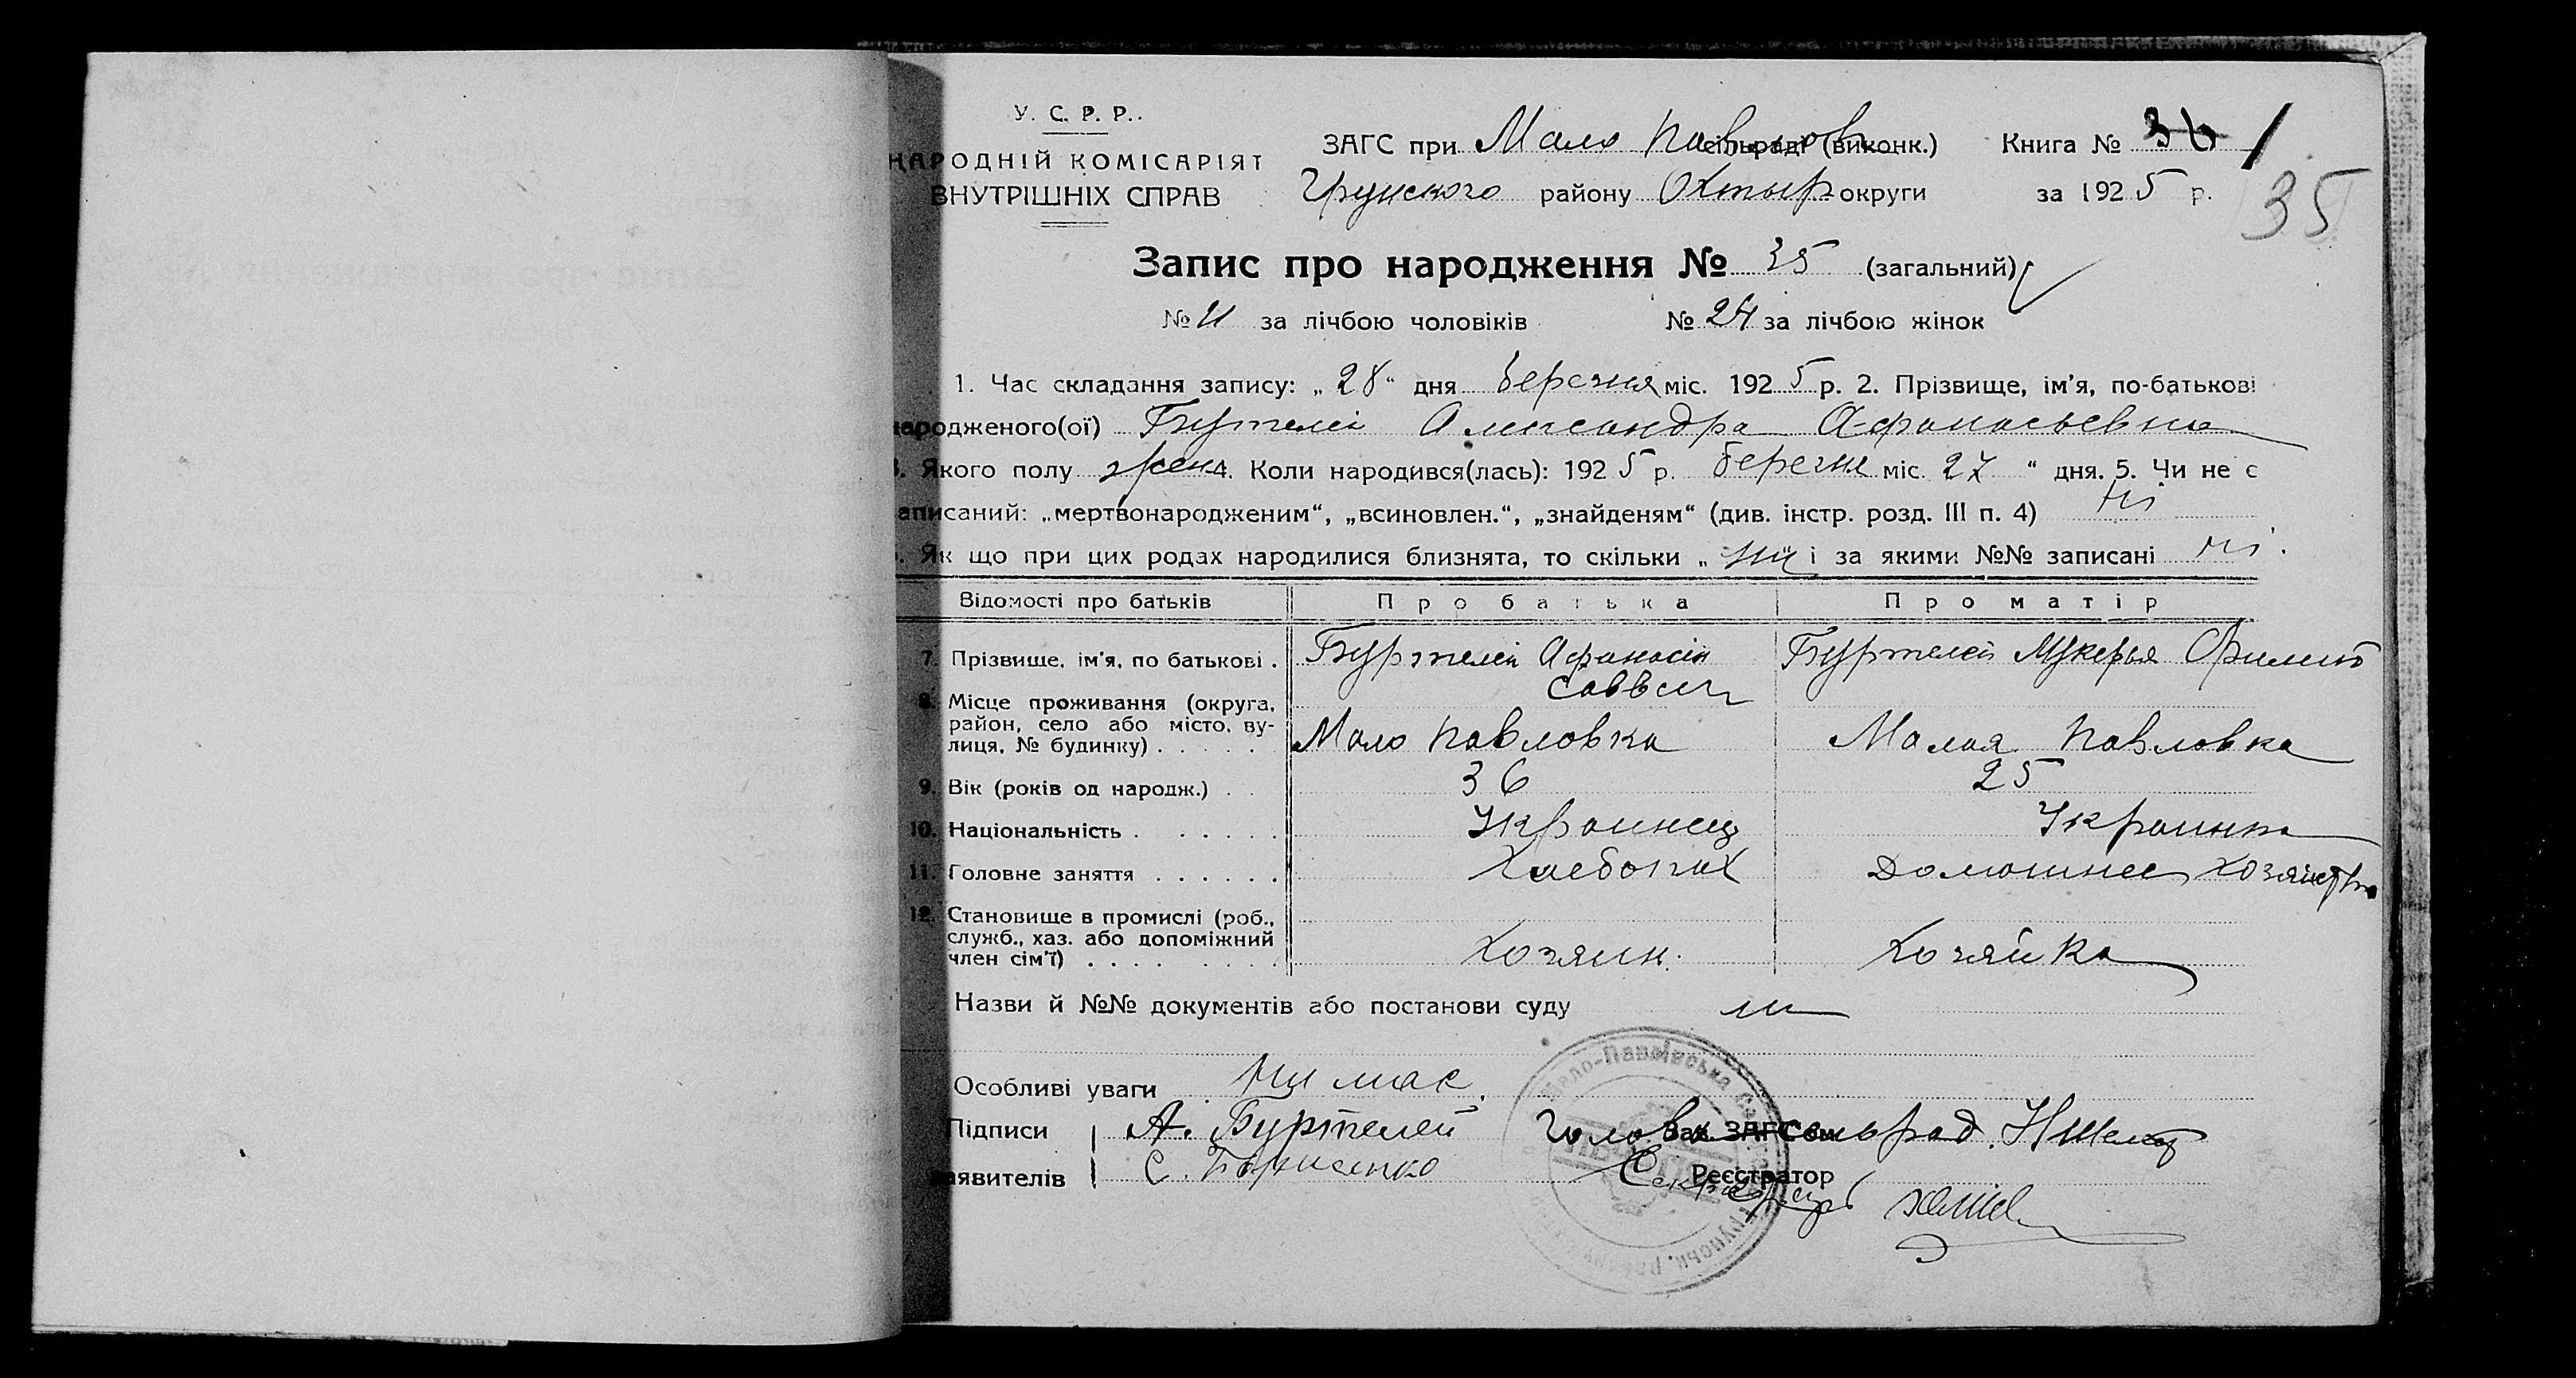 У. С. Р. Р.
НАРОДНІЙ КОМІСАРІЯТ
ВНУТРІШНІХ СПРАВ
ЗАГС при Мало Павлов сільраді (виконк.) Книга № 36 1
Грунского району Охтыр округи за 1925 р.
35
Запис про народження № 35 (загальний)
№ 11 за лічбою чоловіків № 24 за лічбою жінок
1. Час складання запису: „28“ дня березня міс. 1925 р. 2. Прізвище, ім'я, по-батькові
народженого(ої) Буртелеі Александра Афанасьевна
3. Якого полу жен 4. Коли народився(лась): 1925 р. березня міс. 27 “ дня. 5. Чи не є
записаний: „мертвонародженим“, „всиновлен.“, „знайденям“ (див. інстр. розд. III п. 4) ні
6. Як що при цих родах народилися близнята, то скільки „ і за якими №№ записані ні.
Відомості про батьків Про батька Про матір
7. Прізвище, ім'я, по батькові . Буртелей Афанасій Буртелей
Саввич
8. Місце проживання (округа,
район, село або місто, ву-
лиця, № будинку) . . . . . Мало Павловка Малая Павловка
9. Вік (років од народж.) . . 36 25
10. Національність . . . . . . Украинец Украинка
11. Головне заняття . . . . . . Хлебопах Домашнее хозяйство
12. Становище в промислі (роб.,
служб., хаз. або допоміжний
член сім'ї) . . . . . . . . Хозяин. Хозяйка
Назви й №№ документів або постанови суду
Особливі уваги має.
Підписи А. Буртелей Голова Зав. ЗАГСом сельрад.
заявителів С. Борисенко Секретарь Реєстратор
Мало-Павлівська